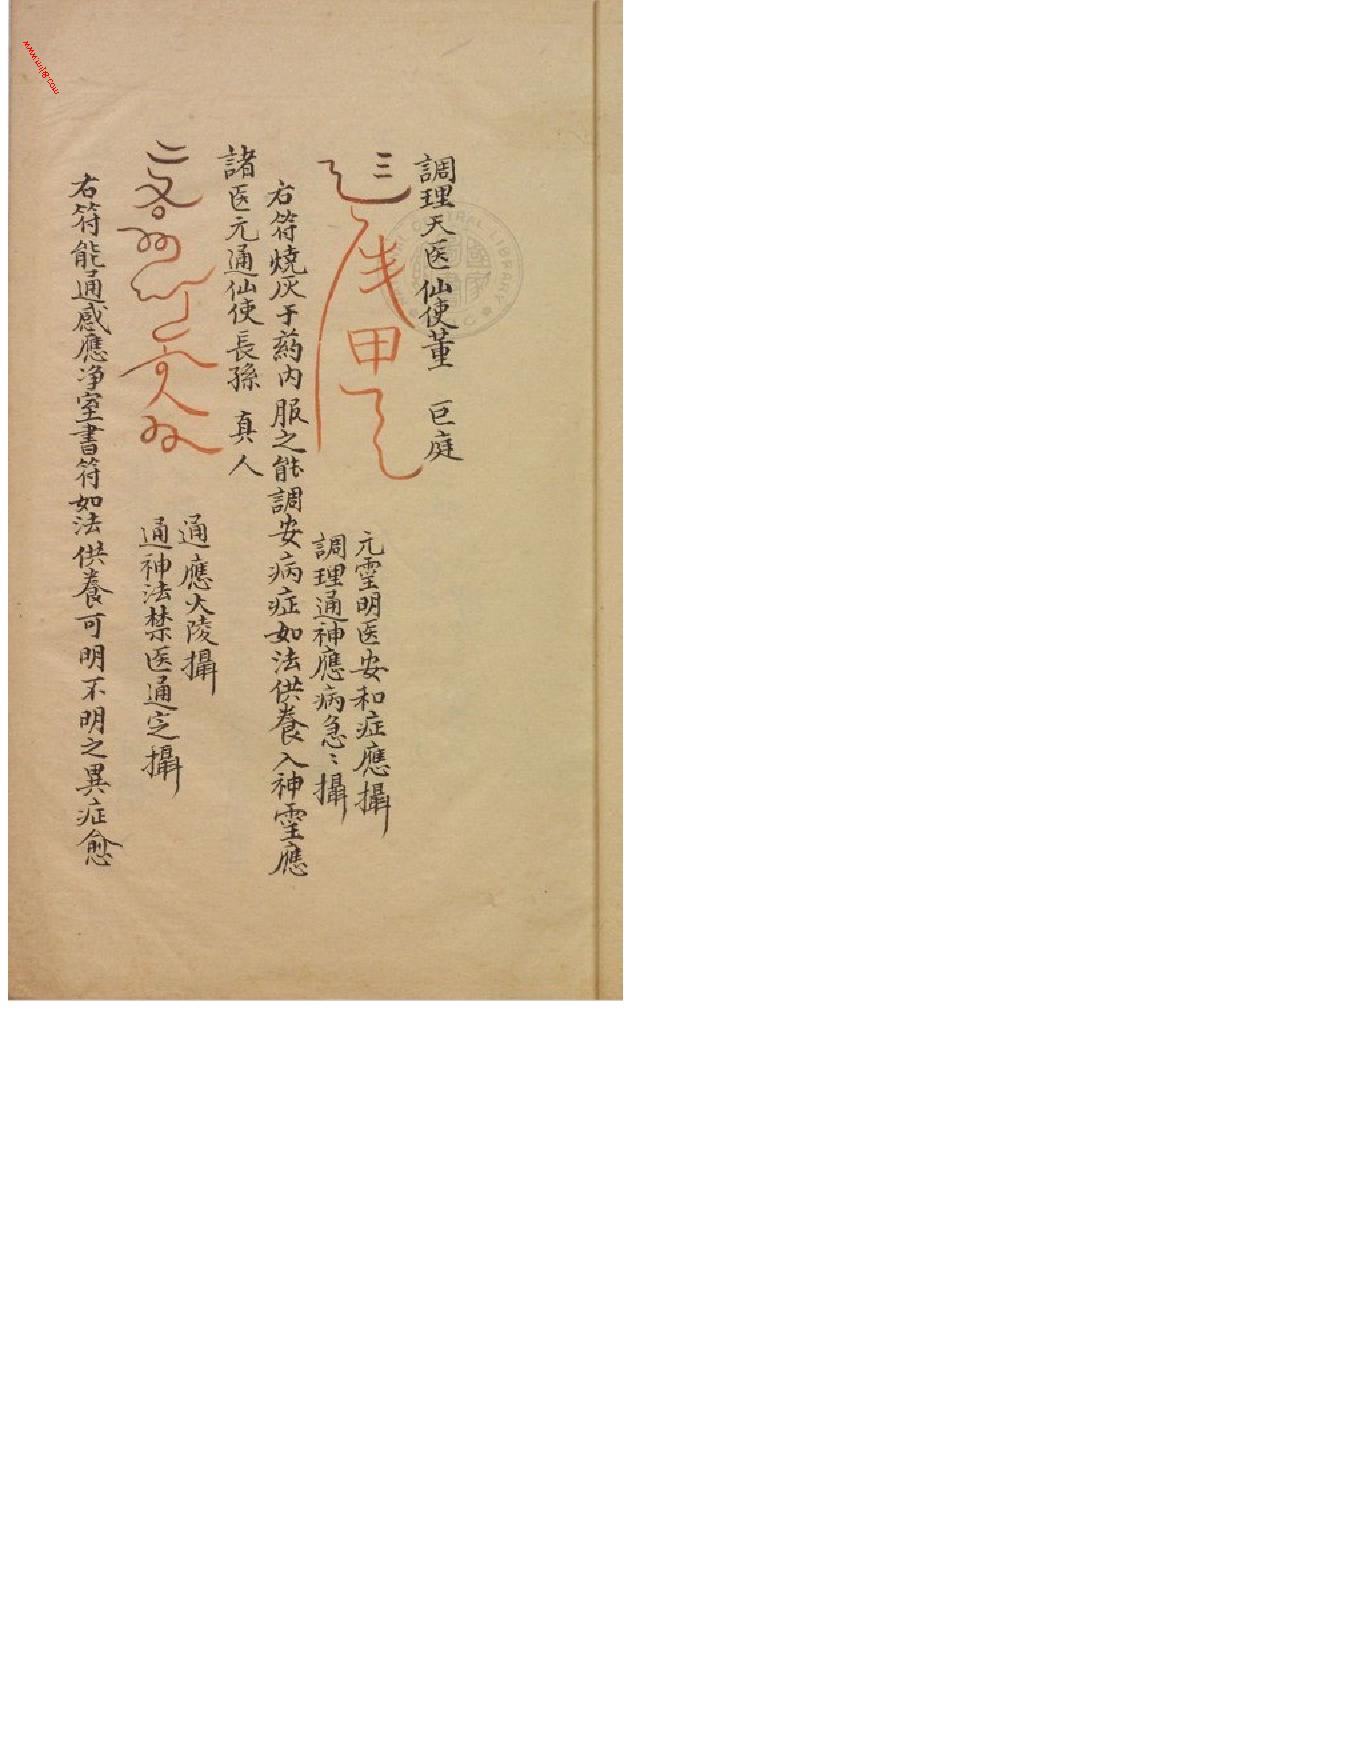 調理天医仙使董　巨庭
三
元霊明医安和症應攝
調理通神應病急〻攝
右符燒灰于葯內服之能調安病症如法供養入神霊應
諸医元通仙使長孫　真人
通應大陵攝
通神法禁医通定攝
右符能通感應净室書符如法供養可明不明之異症愈
CENTRAL LIBRARY